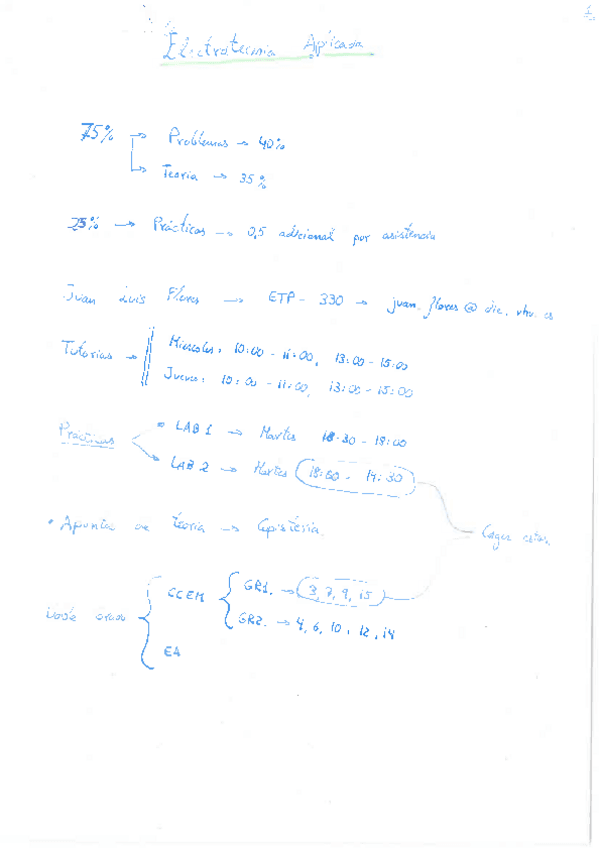 1
Electrotecnia Aplicada
75% → Problemas → 40%
→ Teoría → 35%
25% → Prácticas → 0,5 adicional por asistencia
Juan Luis Flores → ETP - 330 → juan.flores@die.uhu.es
Tutorías → Miércoles: 10:00 - 11:00, 13:00 - 15:00
Jueves: 10:00 - 11:00, 13:00 - 15:00
Prácticas → LAB 1 → Martes 18:30 - 18:00
→ LAB 2 → Martes 18:00 - 19:30
• Apuntes de teoría → Copistería.
Coger estas
CCEM GR1. → 3, 7, 9, 15
GR2. → 4, 6, 10, 12, 14
EA